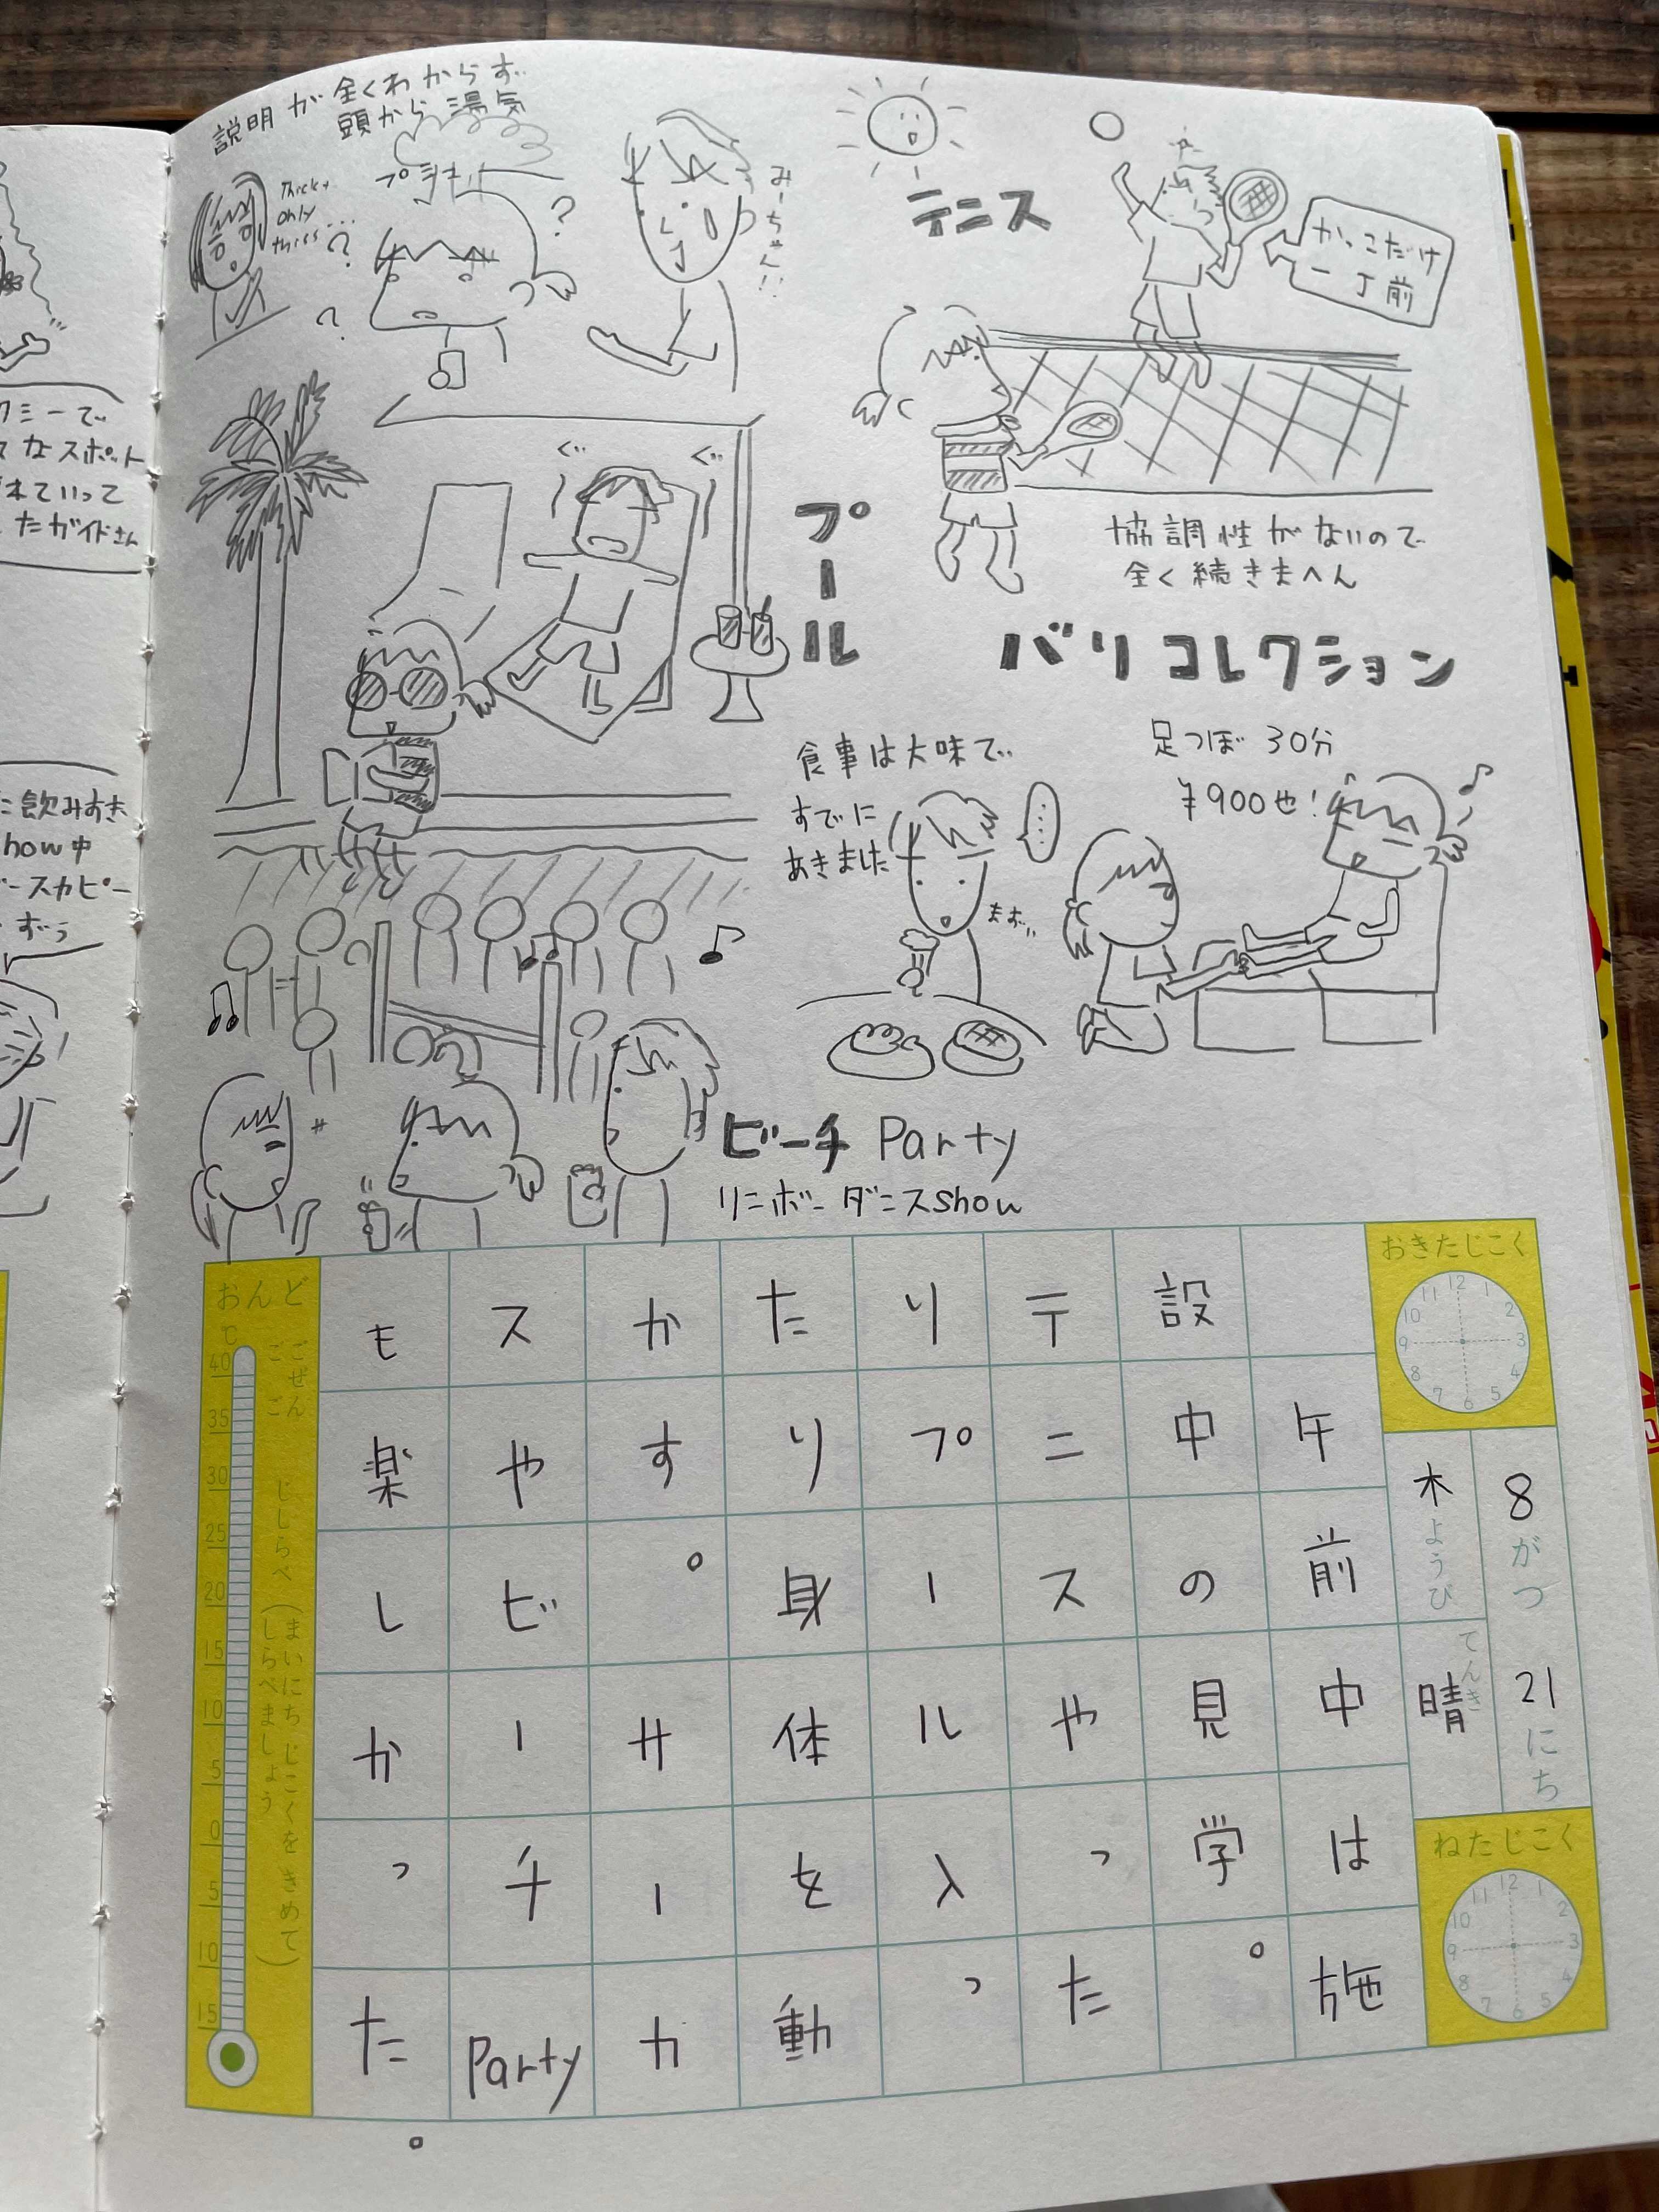 説明が全くわからず
頭から湯気
プシュー
only
this...
?
?
?
みーちゃん!!
テニス
かっこだけ
一丁前
協調性がないので
全く続きまへん
プール
ぐー
ぐー
バリコレクション
食事は大味で
すでに
あきました
まずっ
足つぼ 30分
¥900也!
ビーチ Party
リンボーダンスshow
クミーで
なスポット
れていって
たガイドさん
に飲みすぎ
how中
ースカピー
ずっ
おきたじこく
12 1 2 3 4 5 6 7 8 9 10 11
8がつ 21にち
木ようび
てんき
晴
ねたじこく
12 1 2 3 4 5 6 7 8 9 10 11
午前中は施
設中の見学。
テニスやった
りプール入っ
たり身体を動
かす。サーカ
スやビーチParty
も楽しかった。
おんど
℃
ごぜん
ごご
じ しらべ
(まいにち じこくを きめて
しらべましょう)
40
35
30
25
20
15
10
5
0
5
10
15